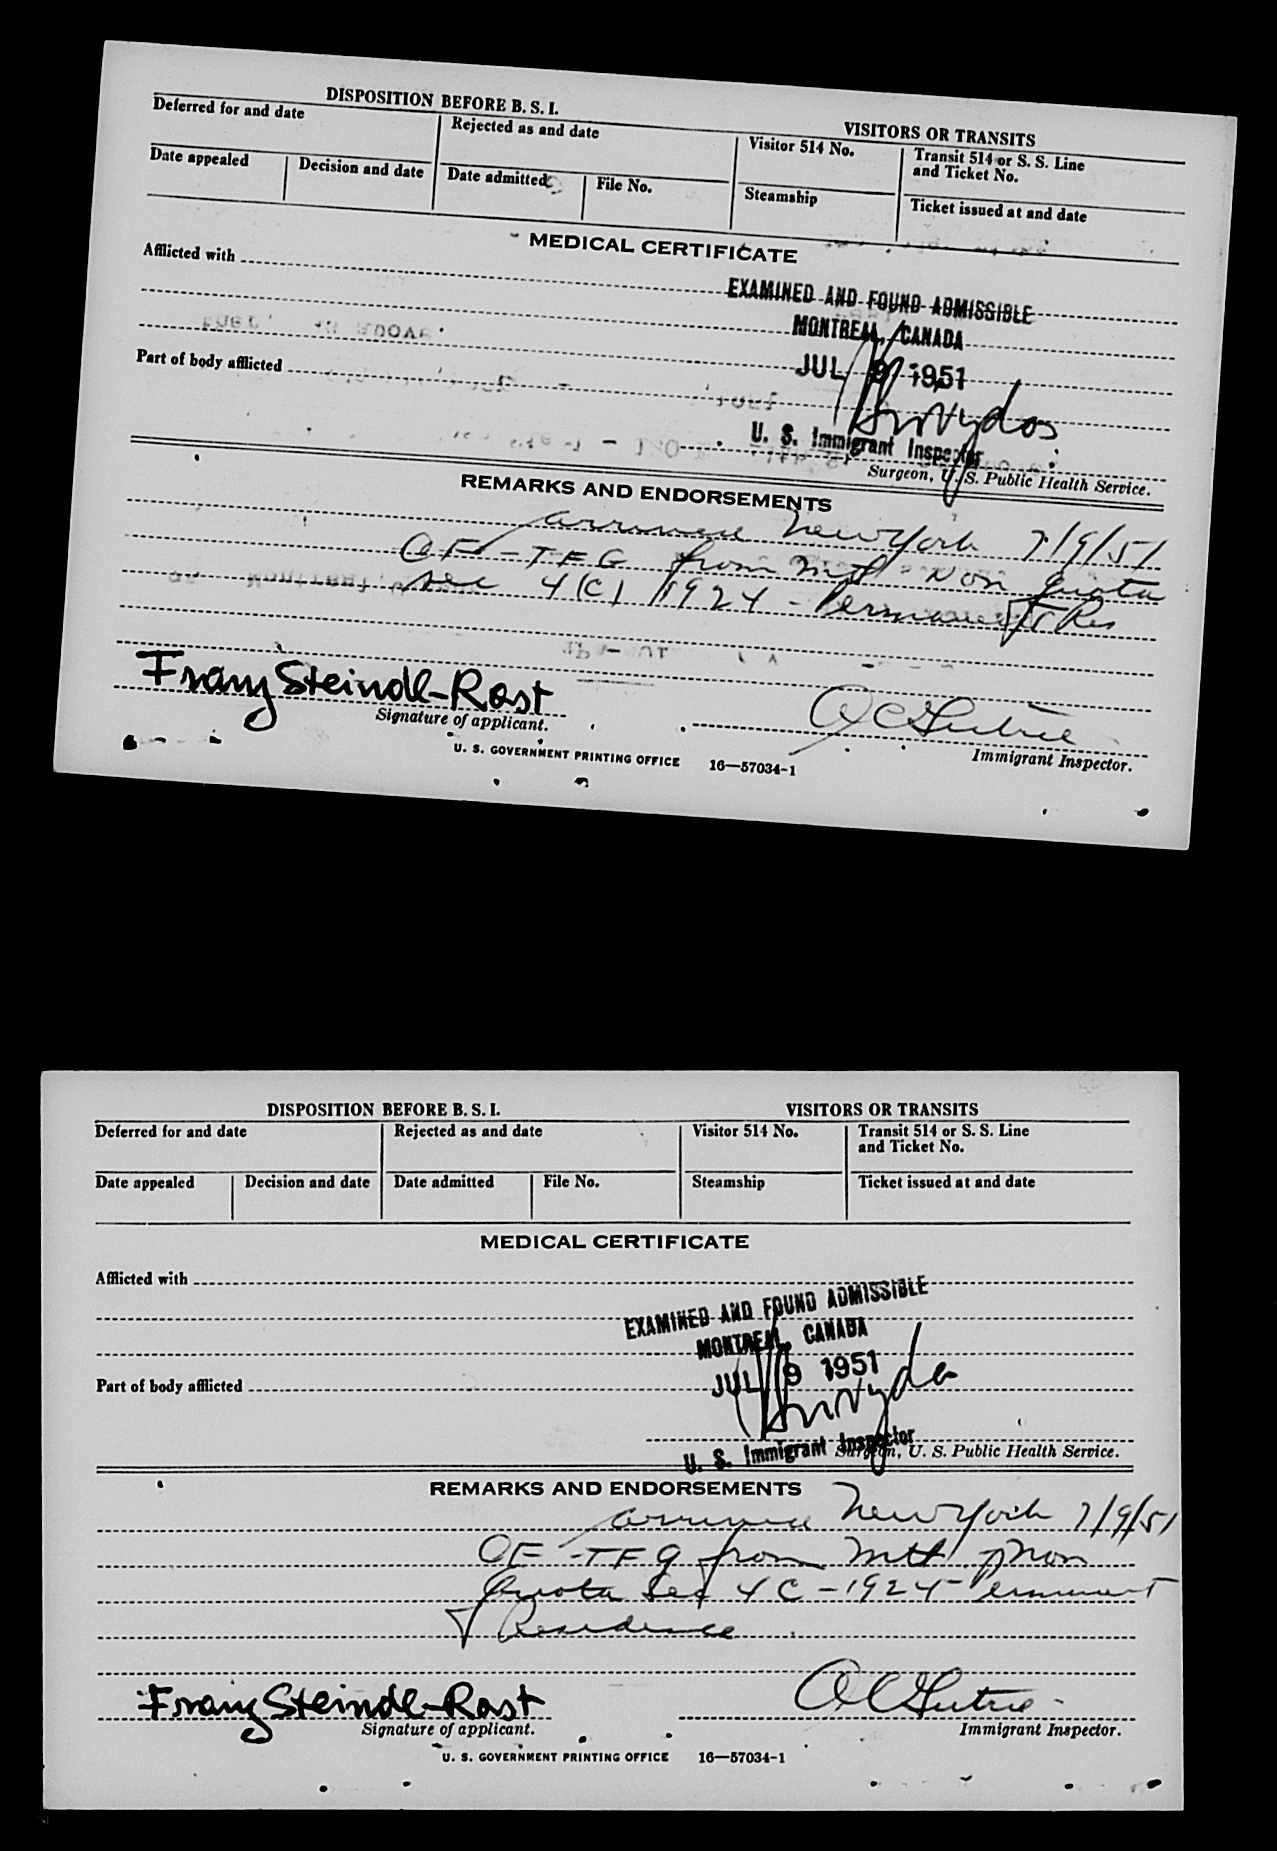 DISPOSITION BEFORE B. S. I.
VISITORS OR TRANSITS
Deferred for and date
Rejected as and date
Visitor 514 No.
Transit 514 or S. S. Line
and Ticket No.
Date appealed
Decision and date
Date admitted
File No.
Steamship
Ticket issued at and date
MEDICAL CERTIFICATE
Afflicted with
EXAMINED AND FOUND ADMISSIBLE
MONTREAL, CANADA
JUL 9 1951
Part of body afflicted
U. S. Immigrant Inspector
Surgeon, U. S. Public Health Service.
REMARKS AND ENDORSEMENTS
arrived New York 7/9/51
OF - TFG from Mtl - Non Quota
sec 4(C) 1924 - Permanent Res
Franz Steindl-Rast
Signature of applicant.
Immigrant Inspector.
U. S. GOVERNMENT PRINTING OFFICE 16—57034-1
DISPOSITION BEFORE B. S. I.
VISITORS OR TRANSITS
Deferred for and date
Rejected as and date
Visitor 514 No.
Transit 514 or S. S. Line
and Ticket No.
Date appealed
Decision and date
Date admitted
File No.
Steamship
Ticket issued at and date
MEDICAL CERTIFICATE
Afflicted with
EXAMINED AND FOUND ADMISSIBLE
MONTREAL, CANADA
JUL 9 1951
Part of body afflicted
U. S. Immigrant Inspector
Surgeon, U. S. Public Health Service.
REMARKS AND ENDORSEMENTS
arrived New York 7/9/51
OF - TFG from Mtl Non
Quota Sec 4 C - 1924 Permanent
Residence
Franz Steindl-Rast
Signature of applicant.
Immigrant Inspector.
U. S. GOVERNMENT PRINTING OFFICE 16—57034-1